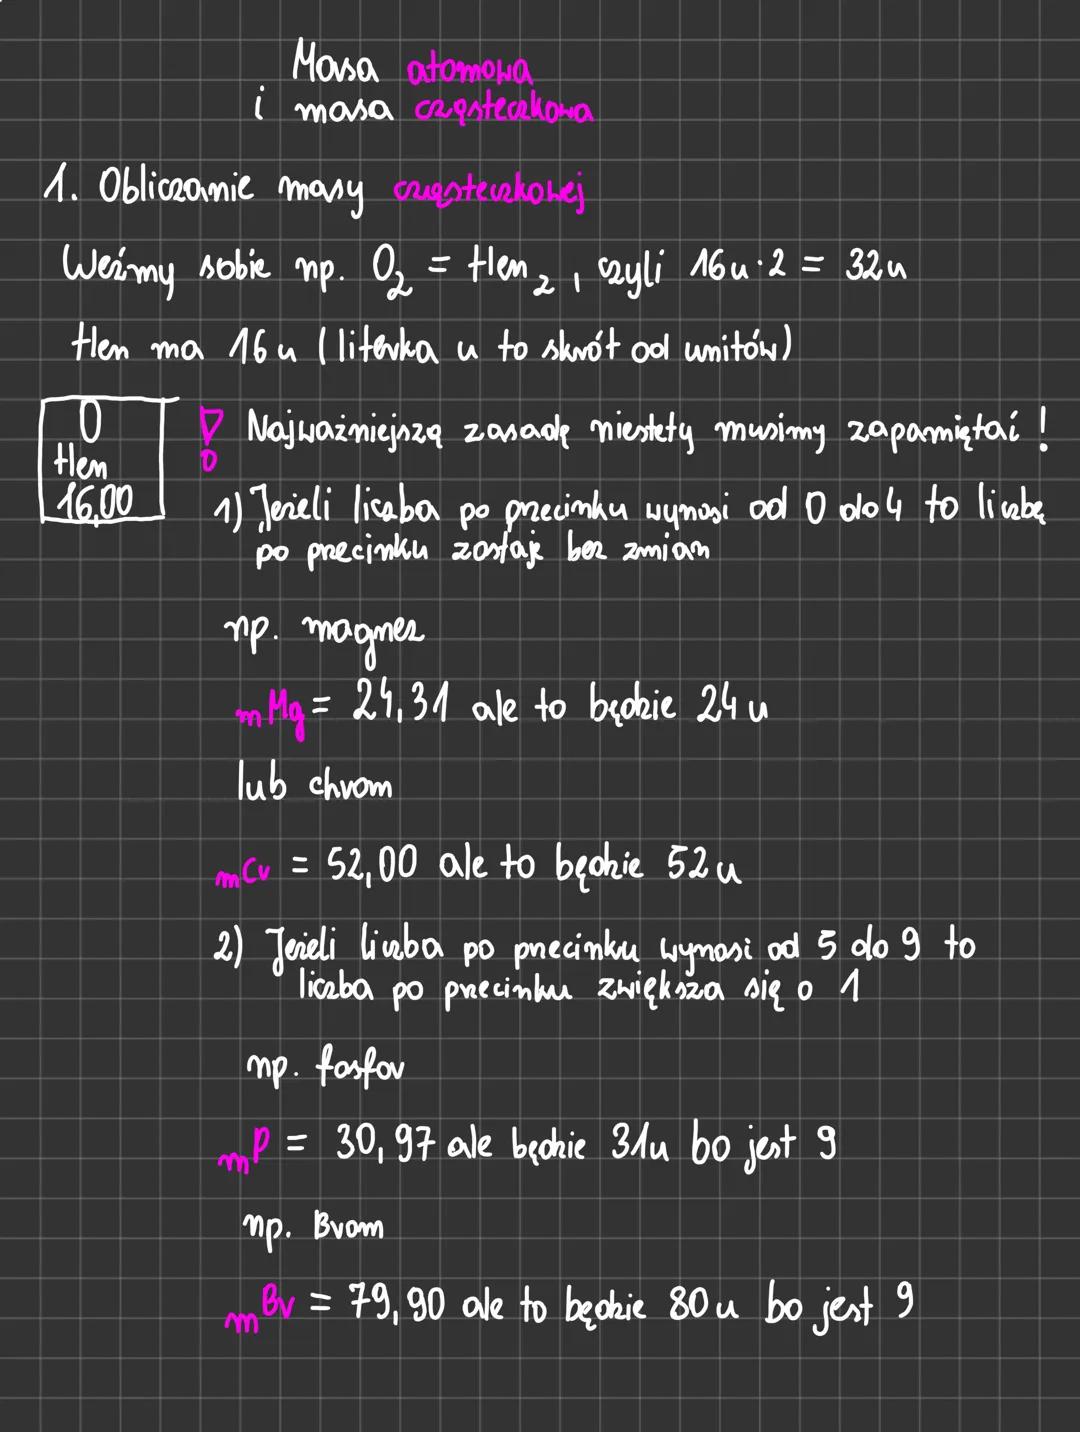 Masa atomowa
i masa cząsteczkowa
1. Obliczanie masy cząsteczkowej
Weźmy sobie np. O₂ = tlen₂, czyli 16u·2 = 32u
tlen ma 16u (literka u to skrót od unitów)
O
tlen
16,00
! Najważniejszą zasadę niestety musimy zapamiętać!
1) Jeżeli liczba po przecinku wynosi od 0 do 4 to liczbę
po przecinku zostaje bez zmian
np. magnez
mMg = 24,31 ale to będzie 24u
lub chrom
mCr = 52,00 ale to będzie 52u
2) Jeżeli liczba po przecinku wynosi od 5 do 9 to
liczba po przecinku zwiększa się o 1
np. fosfor
mP = 30,97 ale będzie 31u bo jest 9
np. Brom
mBr = 79,90 ale to będzie 80u bo jest 9